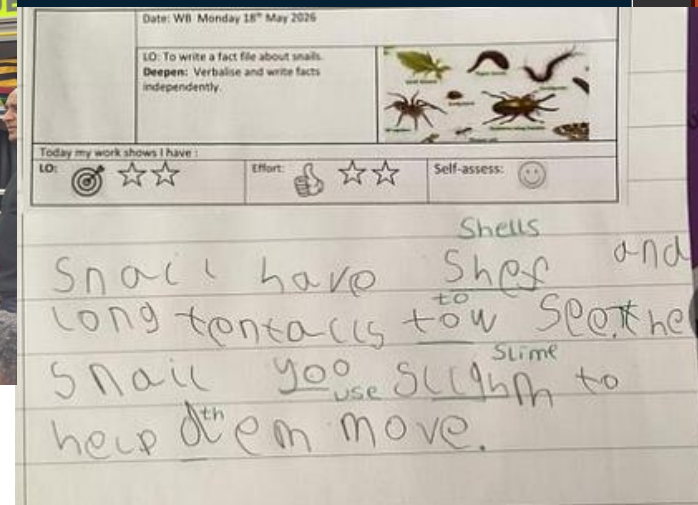 Date: WB Monday 18th May 2026
LO: To write a fact file about snails.
Deepen: Verbalise and write facts
independently.
Today my work shows I have :
LO:
Effort:
Self-assess:
Shells
Snail have Shes and
to
long tentacls tow see.the
Slime
Snail yoo slighm to
use
th
help dem move.